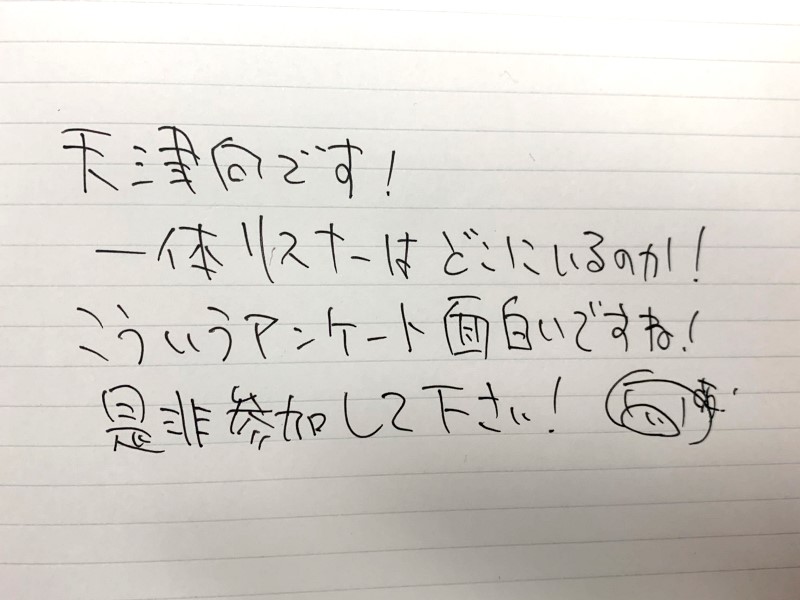 天津向です!
一体リスナーはどこにいるのか!
こういうアンケート面白いですね!
是非参加して下さい!